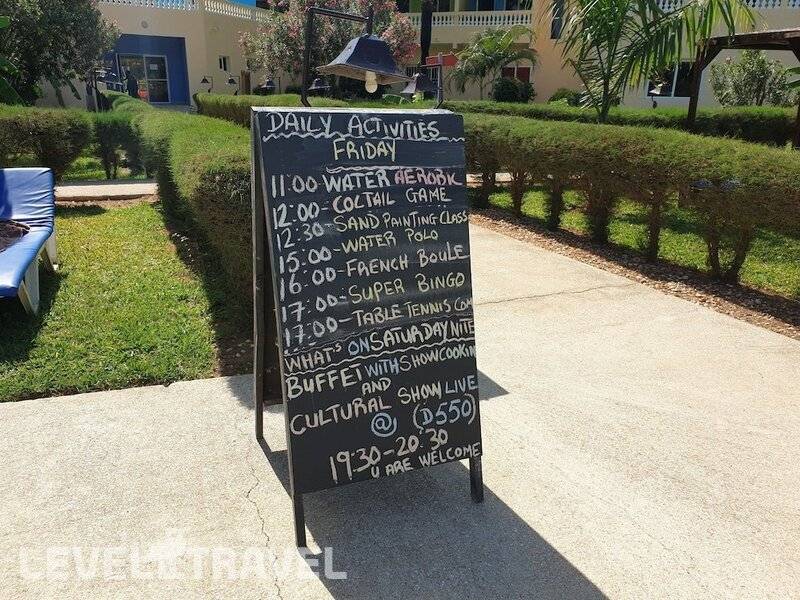 DAILY ACTIVITIES
FRIDAY
11:00-WATER AEROBIC
12:00-COCTAIL GAME
12:30-SAND PAINTING CLASS
15:00-WATER POLO
16:00-FRENCH BOULE
17:00-SUPER BINGO
17:00-TABLE TENNIS COM
WHAT'S ON SATURDAY NITE
BUFFET WITH SHOWCOOKIN
AND
CULTURAL SHOW LIVE
@ (D550)
19:30-20:30
U ARE WELCOME
LEVEL.TRAVEL